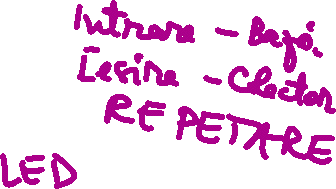 Intrare - Bază.
Iesire - Colector
REPETARE
LED